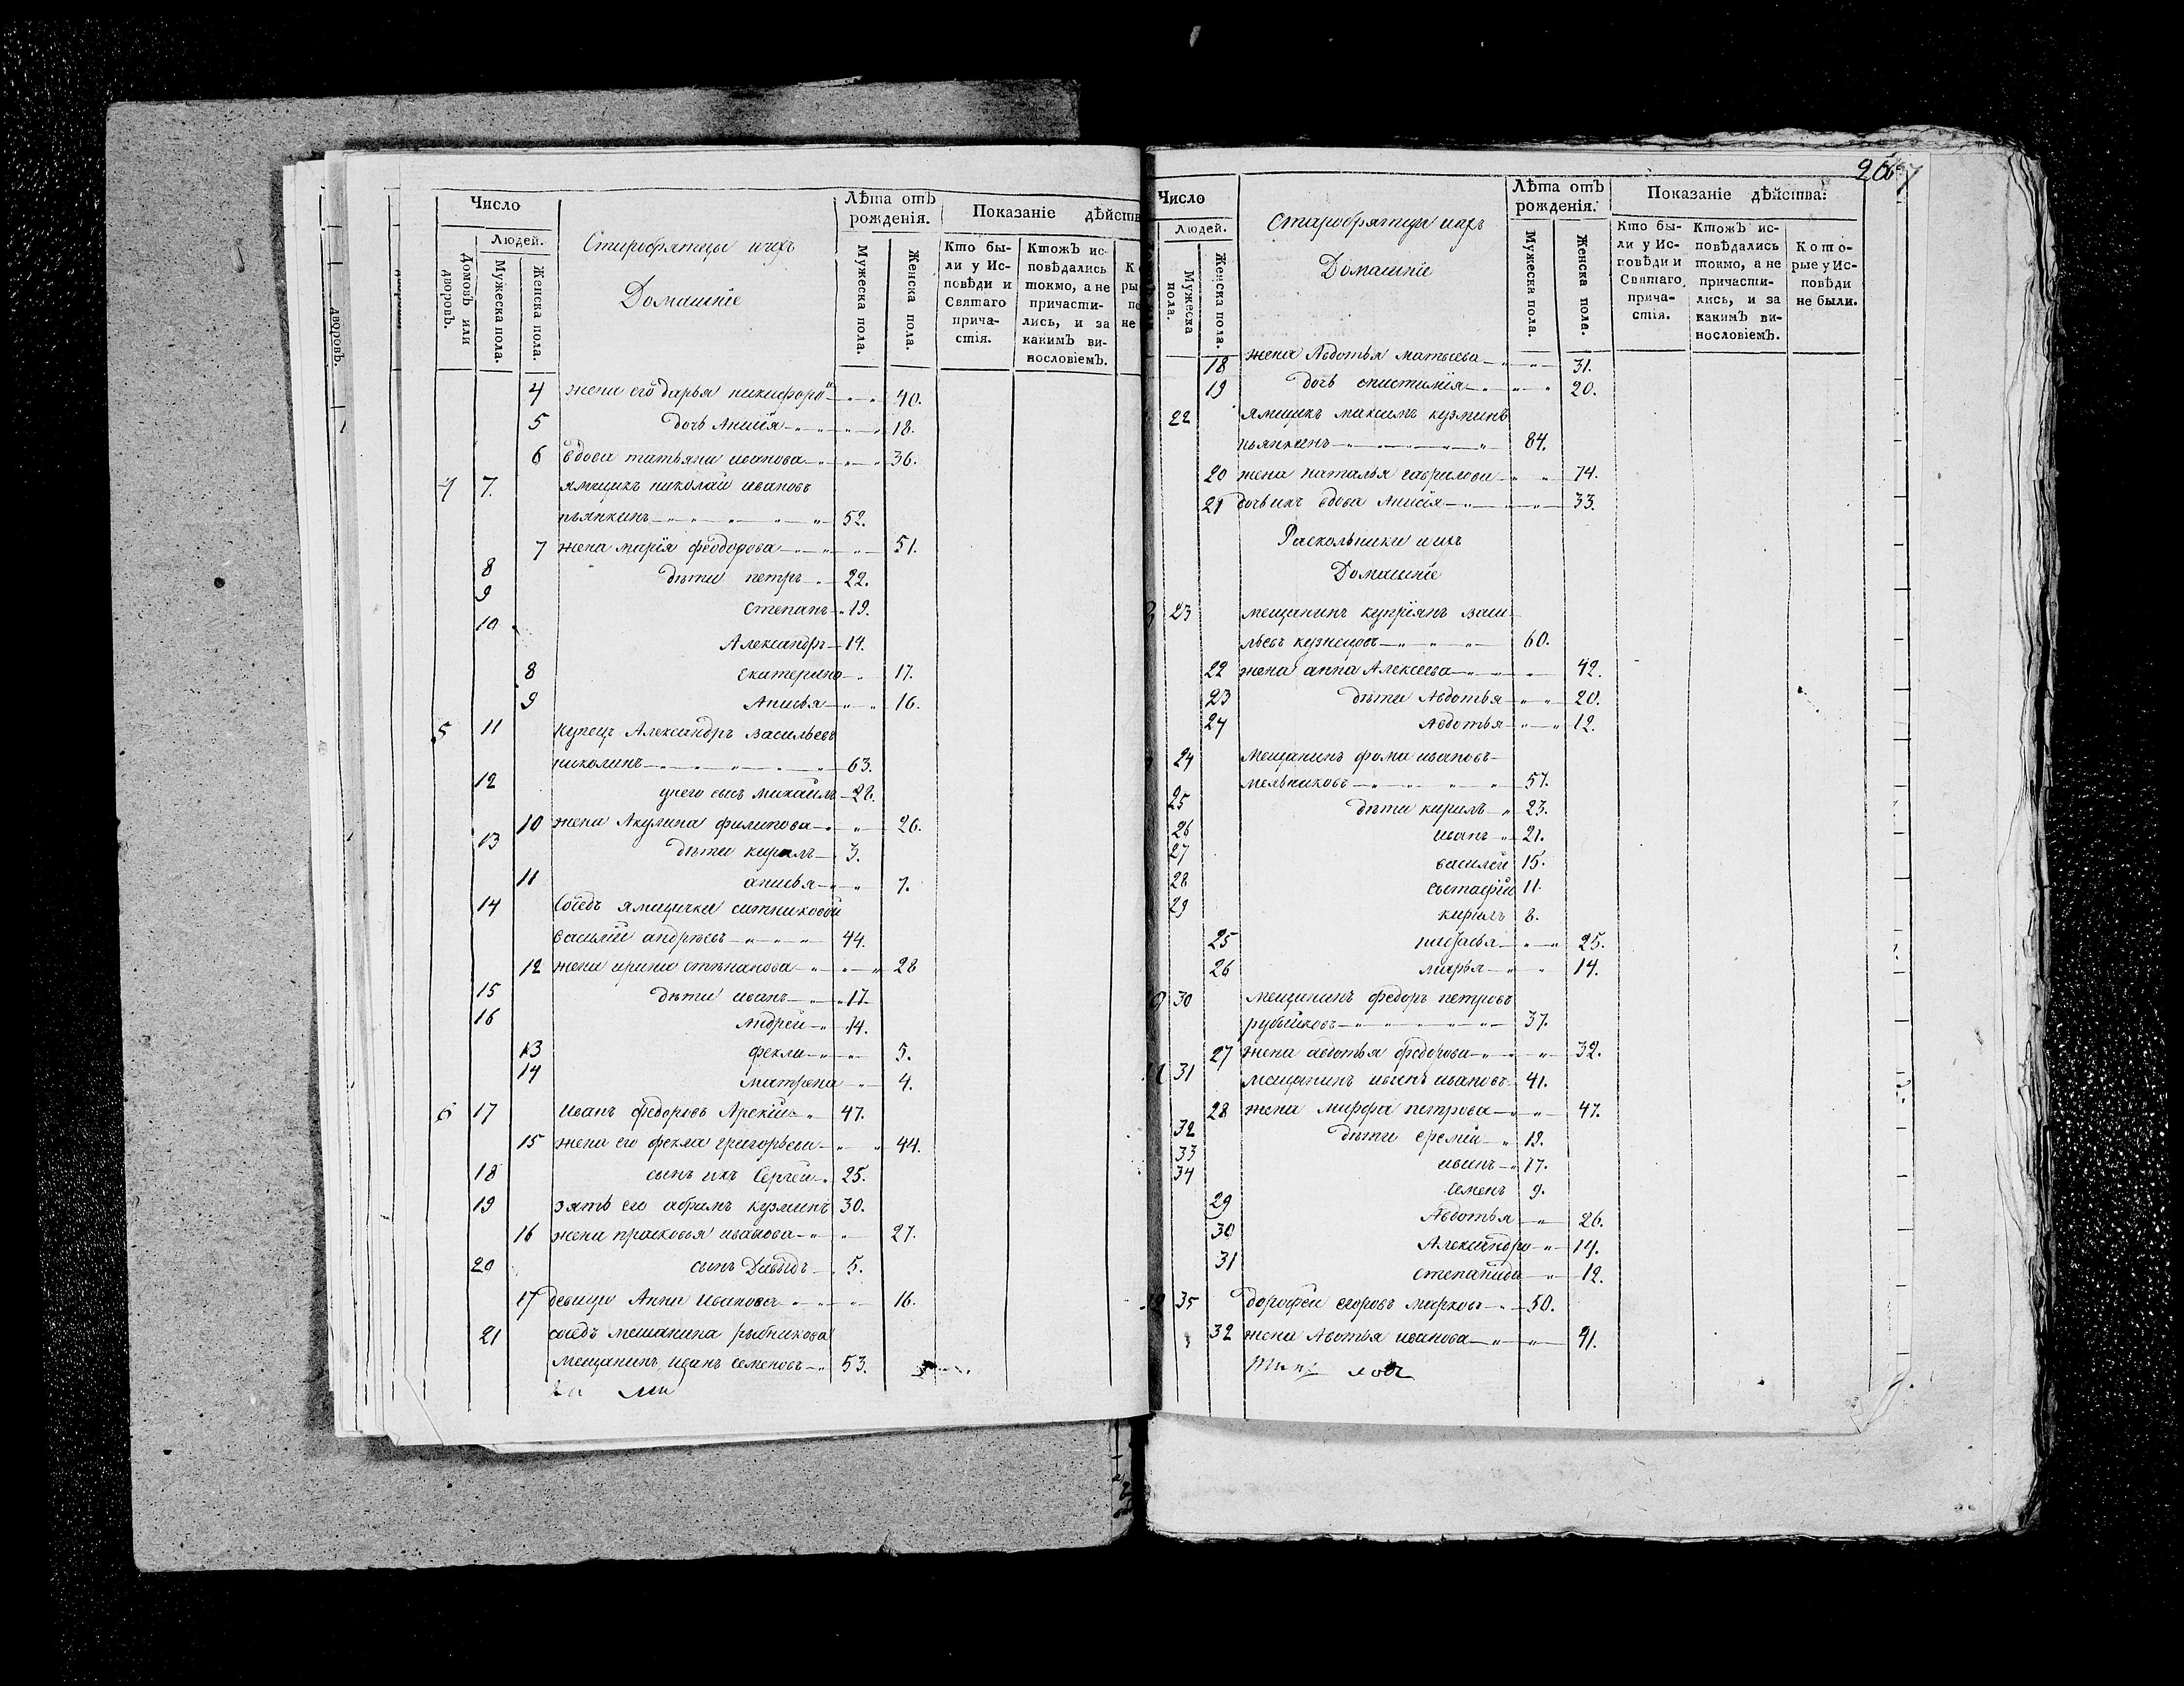 Число
Людей.
Домовъ или дворовъ.
Мужеска пола.
Женска пола.
Старобрятцы и ихъ
Домашніе
Лѣта отъ рожденія.
Мужеска пола.
Женска пола.
Показаніе дѣйства
Кто были у Исповѣди и Святаго причастія.
Ктожъ исповѣдались токмо, а не причастились, и за какимъ винословіемъ.
4 жена его дарья никифоро 40.
5 дочь Анисія 18.
6 вдова татьяна иванова 36.
4 7. ямщикъ николай ивановъ
пьянкинъ 52.
7 жена марія феодорова 51.
8 дѣти петръ 22.
9 степанъ 19.
10 Александръ 14.
8 екатерина 17.
9 Анисья 16.
5 11 купецъ Александръ васильевъ
николинъ 63.
12 у него сынъ михаилъ 28.
10 жена Акулина филипова 26.
13 дѣти кирилъ 3.
11 анисья 7.
14 Сосѣдъ ямщички ситниковой
василій андрѣевъ 44.
12 жена ирина степанова 28
15 дѣти иванъ 17
16 Андрей 14.
13 фекла 5.
14 матрена 4.
6 17 иванъ федоровъ 47.
15 жена его фекла григорьева 44.
18 сынъ ихъ Сергей 25.
19 зять его абрамъ кузминъ 30.
16 жена прасковья иванова 27.
20 сынъ Давыдъ 5.
17 девица Анна иванова 16.
21 сосѣдъ мещанина рыбникова
мещанинъ иванъ семеновъ 53.
267
Число
Людей.
Мужеска пола.
Женска пола.
Старобрятцы и ихъ
Домашніе
Лѣта отъ рожденія.
Мужеска пола.
Женска пола.
Показаніе дѣйства:
Кто были у Исповѣди и Святаго причастія.
Ктожъ исповѣдались токмо, а не причастились, и за какимъ винословіемъ.
Которые у Исповѣди не были.
18 жена Авдотья матвеева 31.
19 дочь 20.
22 ямщикъ максимъ кузминъ
пьянкинъ 84.
20 жена наталья гаврилова 74.
21 дочь ихъ вдова Анисія 33.
Раскольники и ихъ
Домашніе
23 мещанинъ купріянъ васи
льевъ кузнецовъ 60.
22 жена анна Алексеева 42.
23 дѣти Авдотья 20.
24 Авдотья 12.
24 Мещанинъ фома ивановъ
мельниковъ 57.
25 дѣти кирилъ 23.
26 иванъ 21.
27 василей 15.
28 евстафій 11.
29 кирилъ 8.
25 25.
26 марья 14.
30 мещанинъ федоръ петровъ
37.
27 жена авдотья федорова 32.
31 мещанинъ иванъ ивановъ 41.
28 жена марфа петрова 47.
32 дѣти еремей 19.
33 иванъ 17.
34 Семенъ 9.
29 Авдотья 26.
30 Александра 14.
31 степанида 12.
35 дорофей егоровъ марковъ 50.
32 жена Авотья иванова 41.